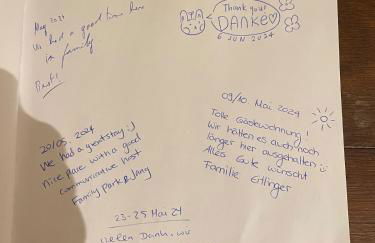 May 2024
We had a good time here
in family.
Thank you!
DANKE
6 JUN 2024
09/10. Mai. 2024
Tolle Gästewohnung!
Wir hätten es auch noch
länger hier ausgehalten :)
Alles Gute wünscht
Familie Ettinger
20/05. 2024
We had a great stay :)
Nice place with a good
communicative host
Family Park & Jany
23-25 Mai 24
Vielen Dank, wir